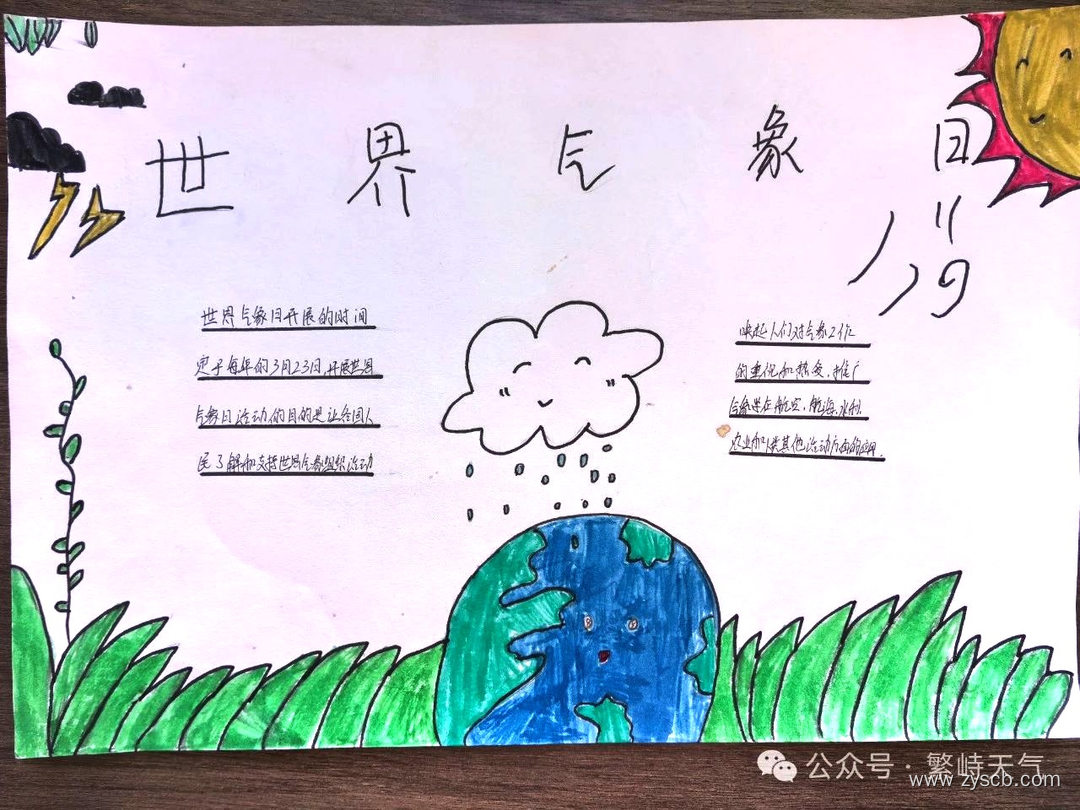 世界气象日
世界气象日开展的时间
定于每年的3月23日,开展世界
气象日活动的目的是让各国人
民了解和支持世界气象组织活动
唤起人们对气象工作
的重视和热爱,推广
气象学在航空,航海,水利,
农业和人类其他活动方面的应用.
公众号·繁峙天气
www.zyscb.com